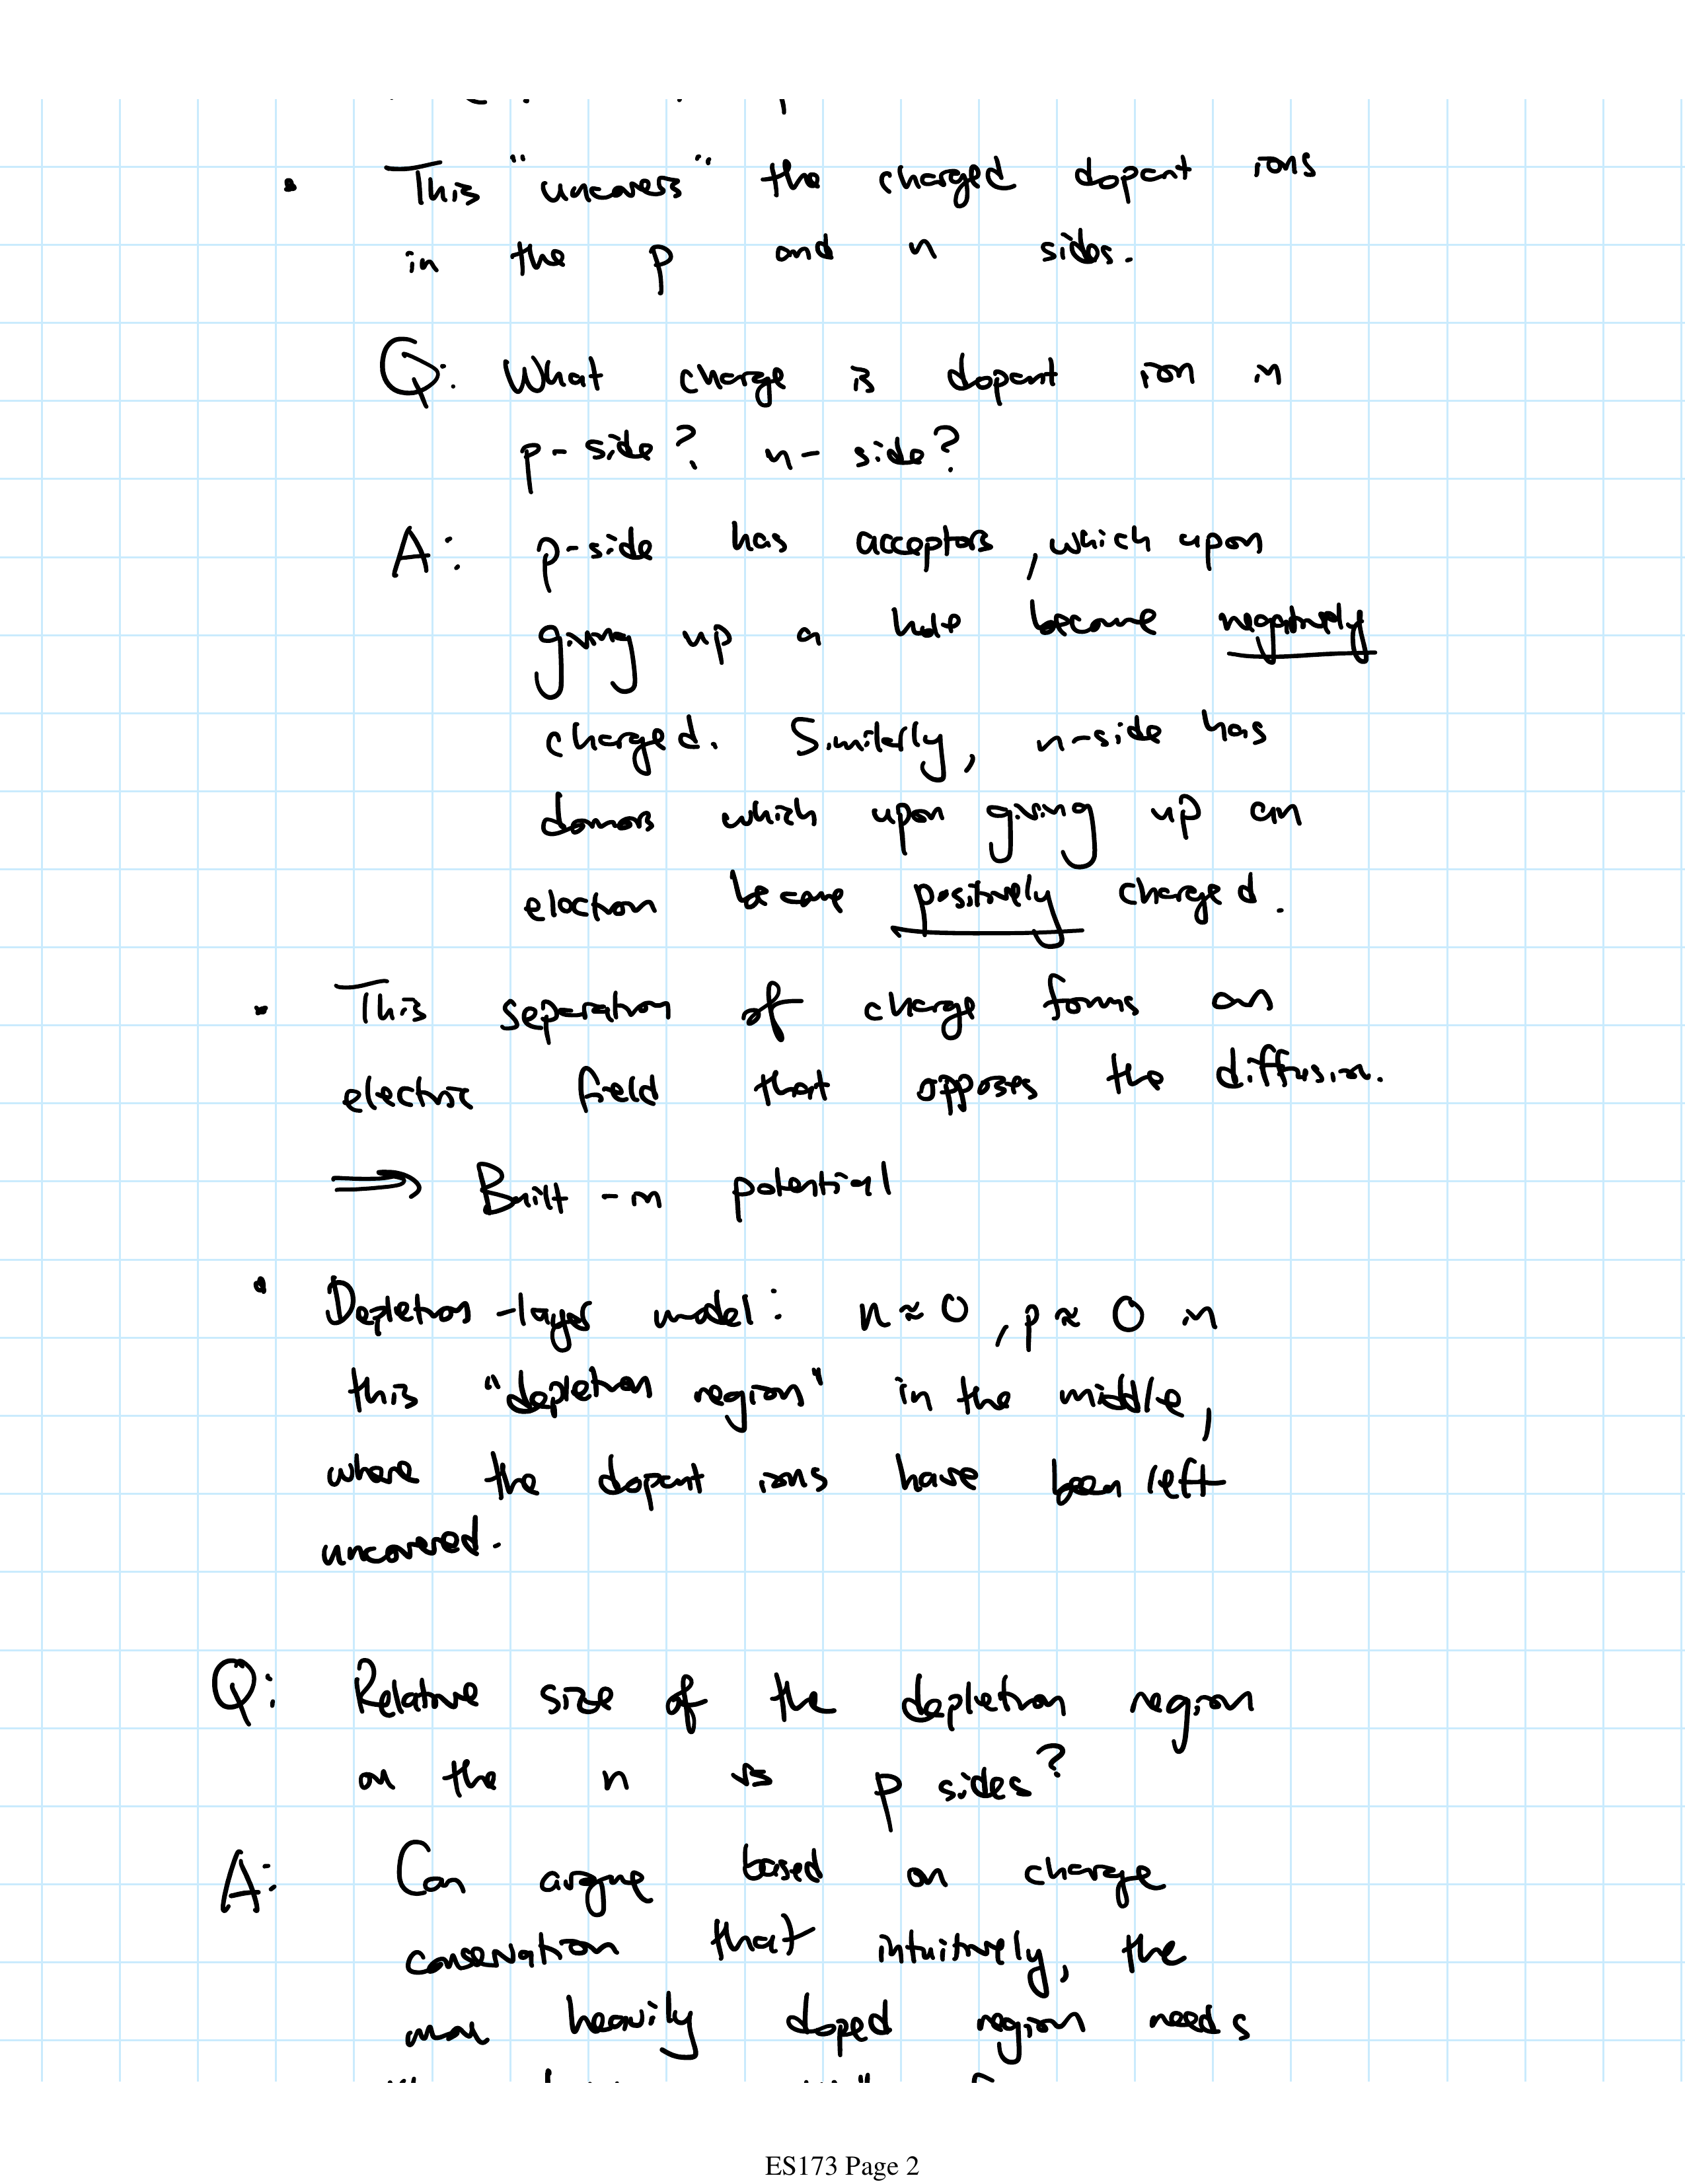 • This "uncovers" the charged dopant ions
in the p and n sides.
Q: What charge is dopant ion in
p-side? n-side?
A: p-side has acceptors, which upon
giving up a hole become negatively
charged. Similarly, n-side has
donors which upon giving up an
electron become positively charged.
• This separation of charge forms an
electric field that opposes the diffusion.
⟹ Built-in potential
• Depletion-layer model: n ≈ 0, p ≈ 0 in
this "depletion region" in the middle,
where the dopant ions have been left
uncovered.
Q: Relative size of the depletion region
on the n vs p sides?
A: Can argue based on charge
conservation that intuitively, the
more heavily doped region needs
ES173 Page 2